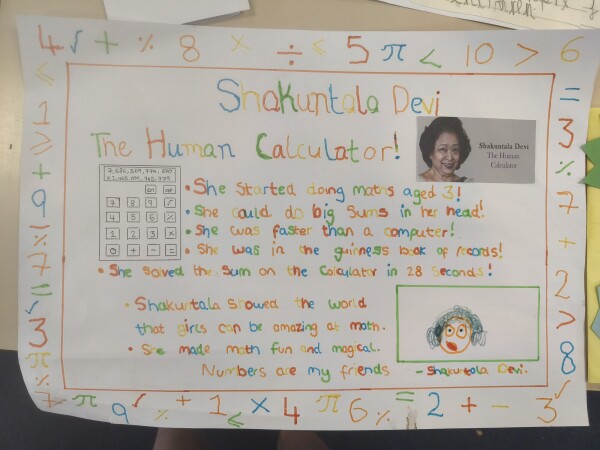 4 √ + % 8 × ÷ ≤ 5 π < 10 > 6
Shakuntala Devi
The Human Calculator!
Shakuntala Devi
The Human
Calculator
• She started doing maths aged 3!
• She could do big sums in her head!
• She was faster than a computer!
• She was in the guinness book of records!
• She solved the sum on the calculator in 28 seconds!
7 8 9 √
4 5 6 %
1 2 3 ×
0 + - =
• Shakuntala showed the world
that girls can be amazing at math.
• She made math fun and magical.
Numbers are my friends
- Shakuntala Devi.
≤
1
≥
+
9
%
7
=
3
π
%
7
=
3
%
7
+
2
>
8
π 9 √ % + 1 ≤ × 4 π 6 % = 2 + - 3 √